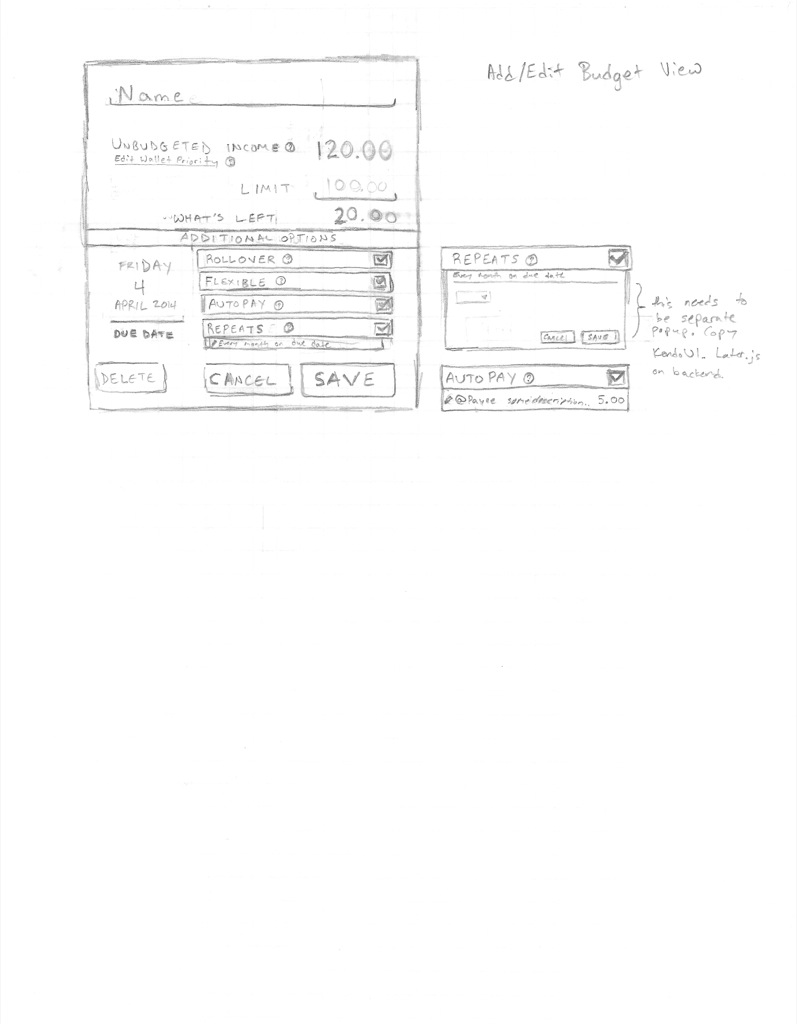 Add/Edit Budget View
Name
UNBUDGETED INCOME ? 120.00
Edit Wallet Priority ?
LIMIT 100.00
WHAT'S LEFT 20.00
ADDITIONAL OPTIONS
FRIDAY
4
APRIL 2014
DUE DATE
ROLLOVER ?
FLEXIBLE ?
AUTOPAY ?
REPEATS ?
Every month on due date
DELETE
CANCEL
SAVE
REPEATS ?
Every month on due date
CANCEL
SAVE
this needs to
be separate
popup. Copy
KendoUI. Later.js
on backend.
AUTOPAY ?
@Payee some description.. 5.00